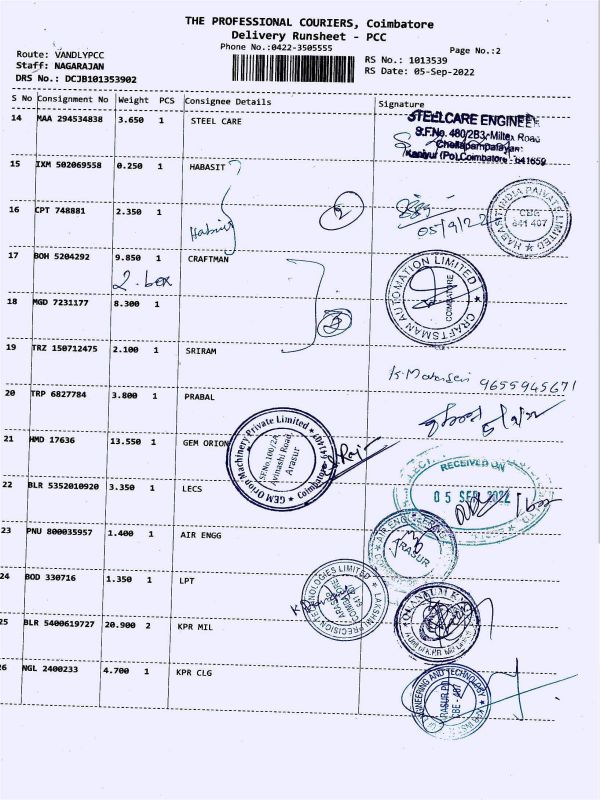 THE PROFESSIONAL COURIERS, Coimbatore
Delivery Runsheet - PCC
Phone No.:0422-3505555
Page No.:2
Route: VANDLYPCC
Staff: NAGARAJAN
DRS No.: DCJB101353902
RS No.: 1013539
RS Date: 05-Sep-2022
S No Consignment No Weight PCS Consignee Details Signature
14 MAA 294534838 3.650 1 STEEL CARE
STEELCARE ENGINEE
S.F.No. 480/2B3, Miltex Road
Chellapampalayam
Kaniyur (Po), Coimbatore - 641659
15 IXM 502069558 0.250 1 HABASIT
16 CPT 748881 2.350 1
Habasit
2
05/9/22
HABASIT INDIA PRIVATE LIMITED
CBE
641 407
17 BOH 5204292 9.850 1 CRAFTMAN
2. box
CRAFTSMAN AUTOMATION LIMITED
COIMBATORE
18 MGD 7231177 8.300 1
19 TRZ 150712475 2.100 1 SRIRAM
9655945671
20 TRP 6827784 3.800 1 PRABAL
21 HMD 17636 13.550 1 GEM ORION
GEM Orion Machinery Private Limited
SF.No.100/2A
Avinashi Road,
Arasur
Coimbatore 641407
22 BLR 5352010920 3.350 1 LECS
RECEIVED ON
05 SEP 2022
23 PNU 800035957 1.400 1 AIR ENGG
ARASUR
24 BOD 330716 1.350 1 LPT
LAKSHMI PRECISION TECHNOLOGIES LIMITED
25 BLR 5400619727 20.900 2 KPR MIL
26 NGL 2400233 4.700 1 KPR CLG
ENGINEERING AND TECHNOLOGY
ARASUR PO
CBE - 407